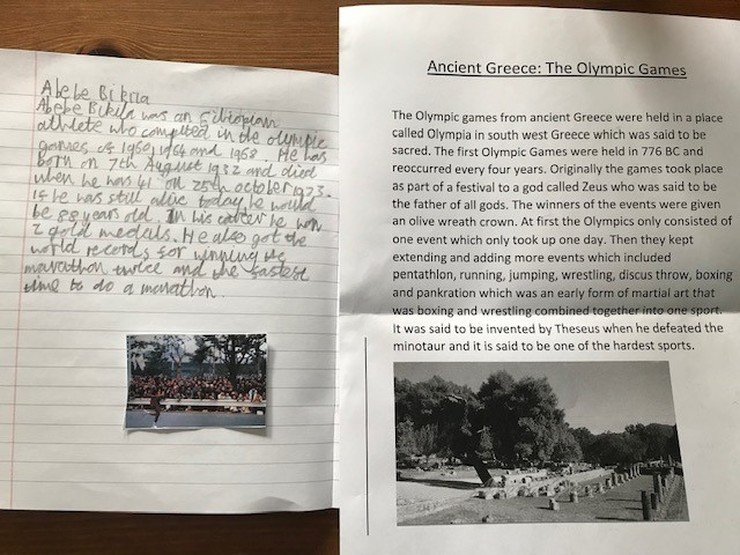 Abebe Bikila
Abebe Bikila was an Ethiopian
athlete who competed in the olympic
games of 1960, 1964 and 1968. He was
born on 7th August 1932 and died
when he was 41 on 25th october 1973.
If he was still alive today he would
be 88 years old. In his career he won
2 gold medals. He also got the
world records for winning the
marathon twice and the fastest
time to do a marathon.
Ancient Greece: The Olympic Games
The Olympic games from ancient Greece were held in a place
called Olympia in south west Greece which was said to be
sacred. The first Olympic Games were held in 776 BC and
reoccurred every four years. Originally the games took place
as part of a festival to a god called Zeus who was said to be
the father of all gods. The winners of the events were given
an olive wreath crown. At first the Olympics only consisted of
one event which only took up one day. Then they kept
extending and adding more events which included
pentathlon, running, jumping, wrestling, discus throw, boxing
and pankration which was an early form of martial art that
was boxing and wrestling combined together into one sport.
It was said to be invented by Theseus when he defeated the
minotaur and it is said to be one of the hardest sports.